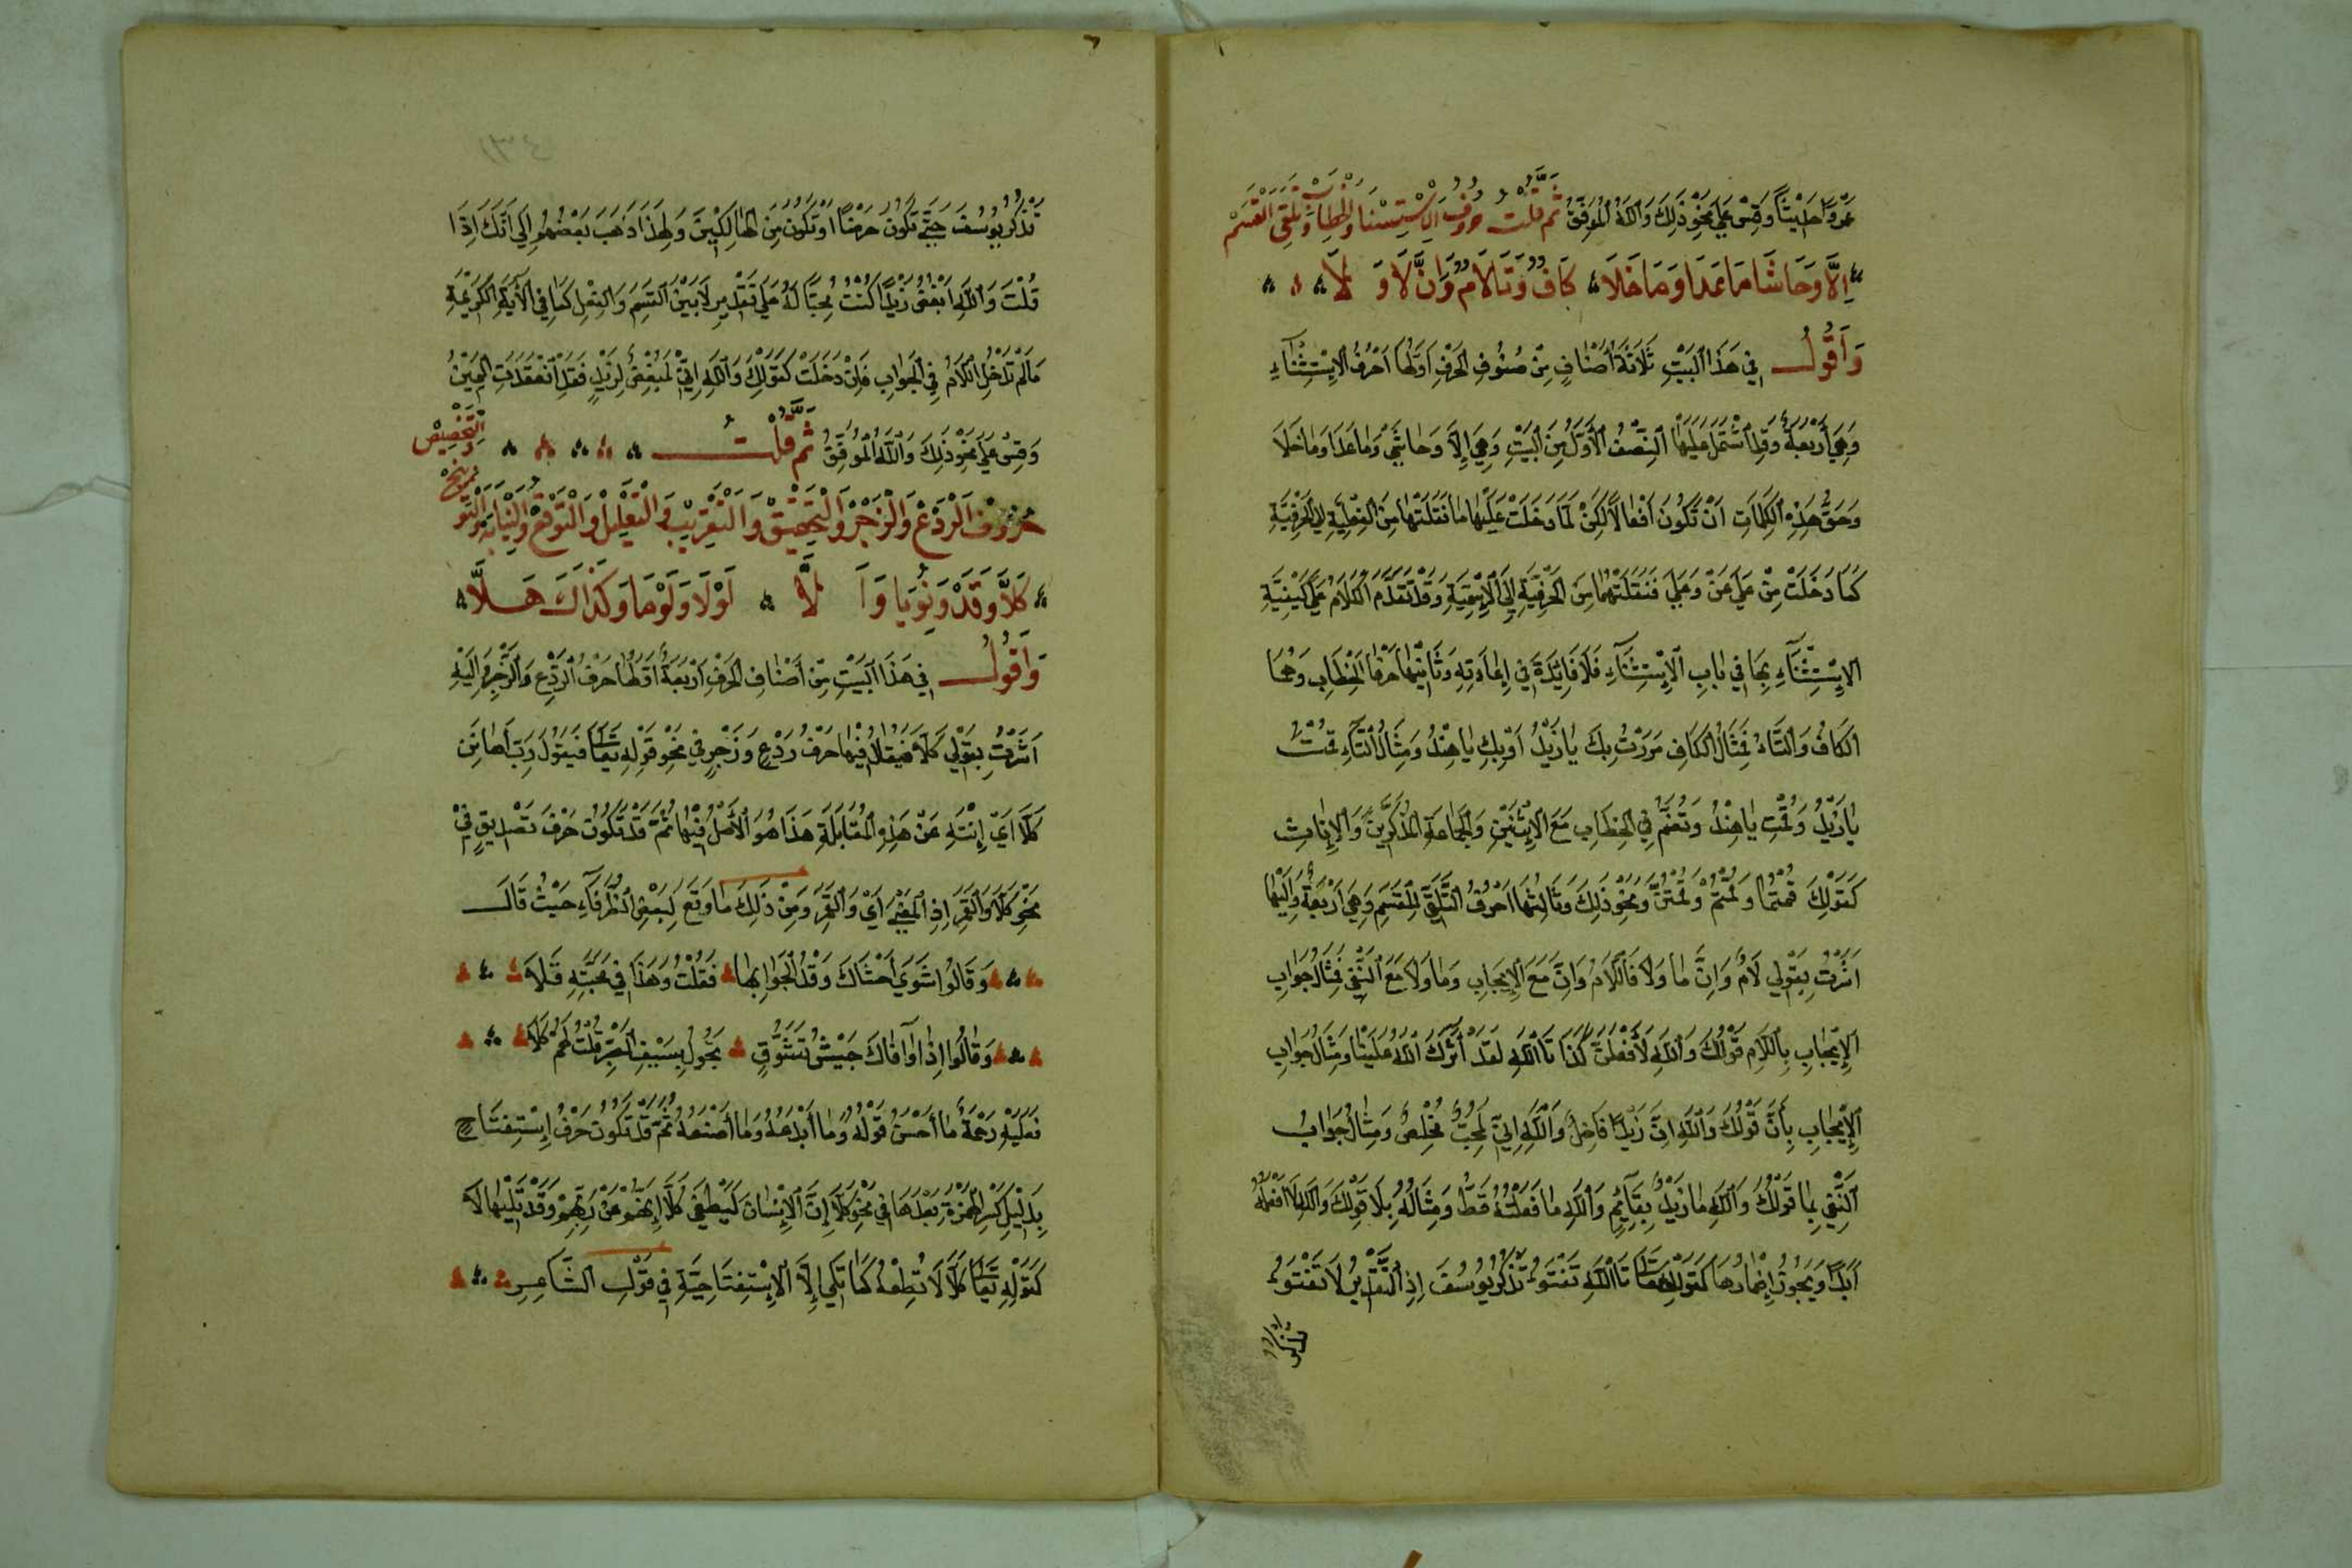 عَمْرًوا جَلِيسًا وَقِسْ عَلَى نَحْوِ ذَلِكَ وَاللهُ الْمُوَفِّقُ ثُمَّ قُلْتُ حُرُوفُ الِاسْتِثْنَا وَالْخِطَابِ وَتَلَقِّي الْقَسَمْ
إِلَّا وَحَاشَا مَا عَدَا وَمَا خَلَا كَافٌ وَتَا لَامٌ وَإِنَّ لَا وَ لَا
وَأَقُولُ فِي هَذَا الْبَيْتِ ثَلَاثَةُ أَصْنَافٍ مِنْ صُنُوفِ الْحَرْفِ أَوَّلُهَا أَحْرُفُ الْإِسْتِثْنَآءِ
وَهِيَ أَرْبَعَةٌ وَقَدِ اشْتَمَلَ عَلَيْهَا النِّصْفُ الْأَوَّلُ مِنَ الْبَيْتِ وَهِيَ إِلَّا وَحَاشَى وَمَا عَدَا وَمَا خَلَا
وَحَقُّ هَذِهِ الْكَلِمَاتِ أَنْ تَكُونَ أَفْعَالًا لَكِنْ لَمَّا دَخَلَتْ عَلَيْهَا مَا نَقَلَتْهَا مِنَ الْفِعْلِيَّةِ إِلَى الْحَرْفِيَّةِ
كَمَا دَخَلَتْ مِنْ عَلَى عَنْ وَعَلَى فَنَقَلَتْهُمَا مِنَ الْحَرْفِيَّةِ إِلَى الْإِسْمِيَّةِ وَقَدْ تَقَدَّمَ الْكَلَامُ عَلَى كَيْفِيَّةِ
الْإِسْتِثْنَآءِ بِهَا فِي بَابِ الْإِسْتِثْنَآءِ فَلَا فَايِدَةَ فِي إِعَادَتِهِ وَثَانِيهَا حَرْفَا الْخِطَابِ وَهُمَا
الْكَافُ وَالتَّاءُ فَمِثَالُ الْكَافِ مَرَرْتُ بِكَ يَا زَيْدُ أَوْ بِكِ يَا هِنْدُ وَمِثَالُ التَّآءِ قُمْتَ
يَا زَيْدُ وَقُمْتِ يَا هِنْدُ وَتُضَمُّ فِي الْخِطَابِ مَعَ الْإِثْنَيْنِ وَالْجَمَاعَةِ الْمُذَكَّرِينَ وَالْإِنَاثِ
كَقَوْلِكَ قُمْتُمَا وَقُمْتُمْ وَقُمْتُنَّ وَنَحْوِ ذَلِكَ وَثَالِثُهَا أَحْرُفُ التَّلَقِّي لِلْقَسَمِ وَهِيَ أَرْبَعَةٌ وَإِلَيْهَا
أَشَرْتُ بِقَوْلِي لَامٌ وَإِنَّ مَا وَلَا فَاللَّامُ وَإِنَّ مَعَ الْإِيجَابِ وَمَا وَلَا مَعَ النَّفْيِ فَمِثَالُ جَوَابِ
الْإِيجَابِ بِاللَّامِ قَوْلُكَ وَاللهِ لَأَفْعَلَنَّ كَذَا تَاللهِ لَقَدْ آثَرَكَ اللهُ عَلَيْنَا وَمِثَالُ جَوَابِ
الْإِيجَابِ بِأَنَّ قَوْلُكَ وَاللهِ إِنَّ زَيْدًا فَاضِلٌ وَاللهِ إِنِّي لَمُحِبٌّ مُخْلِصٌ وَمِثَالُ جَوَابُ
النَّفْيِ بِمَا قَوْلُكَ وَاللهِ مَا زَيْدٌ بِقَآئِمٍ وَاللهِ مَا فَعَلْتُهُ قَطُّ وَمِثَالُهُ بِلَا قَوْلُكَ وَاللهِ لَا أَفْعَلُهُ
أَبَدًا وَيَجُوزُ إِضْمَارُهَا كَقَوْلِهِ تَعَالَى تَاللهِ تَفْتَؤُ تَذْكُرُ يُوسُفَ إِذِ التَّقْدِيرُ لَا تَفْتَؤُ
تَذْكُرُ
تَذْكُرُ يُوسُفَ حَتَّى تَكُونَ حَرَضًا أَوْ تَكُونَ مِنَ الْهَالِكِينَ وَلِهَذَا ذَهَبَ بَعْضُهُمْ إِلَى أَنَّكَ إِذَا
قُلْتَ وَاللهِ أَبْغَضُ زَيْدًا كُنْتَ مُحِبًّا لَهُ عَلَى تَقْدِيرِ لَا بَيْنَ الْقَسَمِ وَالْفِعْلِ كَمَا فِي الْآيَةِ الْكَرِيمَةِ
مَا لَمْ تَدْخُلِ اللَّامُ فِي الْجَوَابِ فَإِنْ دَخَلَتْ كَقَوْلِكَ وَاللهِ إِنِّي لَمُبْغِضٌ لِزَيْدٍ فَقَدِ انْعَقَدَتِ الْيَمِينُ
وَقِسْ عَلَى نَحْوِ ذَلِكَ وَاللهُ الْمُوَفِّقُ ثُمَّ قُلْتُ
حُرُوفُ الرَّدْعِ وَالزَّجْرِ وَالتَّحْقِيقِ وَالتَّقْرِيبِ وَالتَّقْلِيلِ وَالتَّوَقُّعِ وَالنِّيَابَةِ وَالتَّوْبِيخِ وَالتَّخْصِيصِ
كَلَّا وَقَدْ وَنُوِّيَا وَأَلَّا لَوْلَا وَلَوْمَا وَكَذَاكَ هَلَّا
وَأَقُولُ فِي هَذَا الْبَيْتِ مِنْ أَصْنَافِ الْحَرْفِ أَرْبَعَةٌ أَوَّلُهَا حَرْفُ الرَّدْعِ وَالزَّجْرِ وَإِلَيْهِ
أَشَرْتُ بِقَوْلِي كَلَّا فَيُقَالُ فِيهَا حَرْفُ رَدْعٍ وَزَجْرٍ فِي نَحْوِ قَوْلِهِ تَعَالَى فَيَقُولَ رَبِّ أَهَانَنِ
كَلَّا أَيْ إِنْتَهِ عَنْ هَذِهِ الْمُقَابَلَةِ هَذَا هُوَ الْأَصْلُ فِيهَا ثُمَّ قَدْ تَكُونُ حَرْفَ تَصْدِيقٍ فِي
نَحْوِ كَلَّا وَالْقَمَرِ إِذِ الْمَعْنَى أَيْ وَالْقَمَرِ وَمِنْ ذَلِكَ مَا وَقَعَ لِبَعْضِ الظُّرَفَآءِ حَيْثُ قَالَ
وَقَالُوا شَوَى أَحْشَاكَ وَقْدُ الْجَوَى بِهَا فَقُلْتُ وَهَذَا فِي مَحَبَّتِهِ قَلَّا
وَقَالُوا إِذَا وَافَاكَ جَيْشُ تَشَوُّقٍ يَجُولُ بِسَيْفِ الْهَجْرِ قُلْتُ لَهُمْ كَلَّا
فَعَلَيْهِ رَحْمَةٌ مَا أَحْسَنَ قَوْلَهُ وَمَا أَبْدَعَهُ وَمَا أَصْنَعَهُ ثُمَّ قَدْ تَكُونُ حَرْفَ إِسْتِفْتَاحٍ
بِدَلِيلِ كَسْرِ الْهَمْزَةِ بَعْدَهَا فِي نَحْوِ كَلَّا إِنَّ الْإِنْسَانَ لَيَطْغَى كَلَّا إِنَّهُمْ عَنْ رَبِّهِمْ وَقَدْ تَلِيهَا لَا
كَقَوْلِهِ تَعَالَى كَلَّا لَا تُطِعْهُ كَمَا تَلِي إِلَّا الْإِسْتِفْتَاحِيَّةِ فِي قَوْلِ الشَّاعِرِ